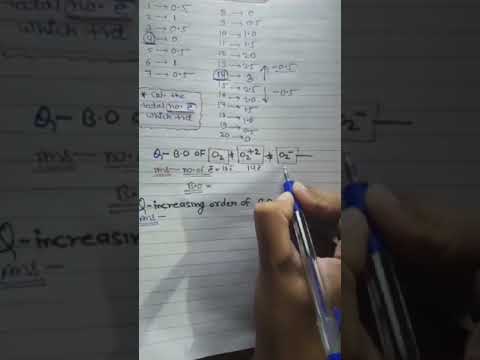 1 → 0.5
2 → 1
3 → 0.5
4 → 0
5 → 0.5
6 → 1
7 → 0.5
8 → 0
9 → 0.5
10 → 1.0
11 → 1.5
12 → 2.0
13 → 2.5
14 → 3
15 → 2.5
16 → 2.0
18 → 1.0
20 → 0
-0.5
-0.5
the
total no. e⁻
which
Q,- B.O OF O₂ O₂⁺² O₂⁻
Ans - no. of e⁻ = 16e⁻ 14e⁻
B.O =
Q - increasing order of
Ans -